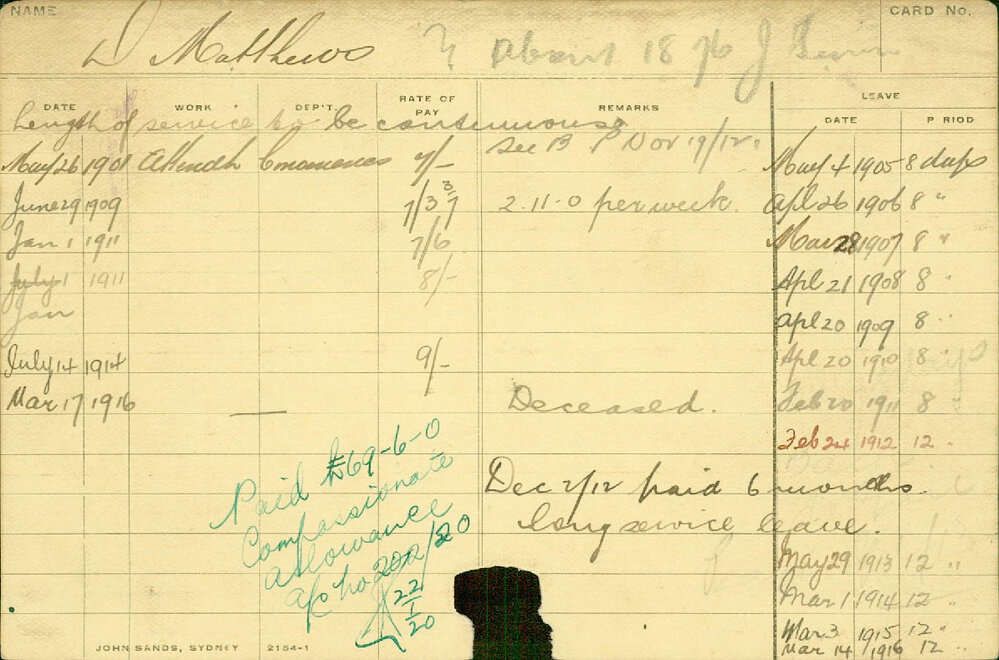 NAME CARD No.
D Matthews ? About 1876 J
DATE WORK DEP'T. RATE OF PAY REMARKS LEAVE
DATE P RIOD
Length of service to be continuous
May 26 1901 7/- See B P Nov 19/12 May 4 1905 8 days
June 29 1909 7/3 3/7 2.11.0 per week. Apl 26 1906 8 "
Jan 1 1911 7/6 Mar 28 1907 8 "
July 1 1911 8/- Apl 21 1908 8 "
Jan Apl 20 1909 8 "
July 14 1914 9/- Apl 20 1910 8 "
Mar 17 1916 — Deceased. Feb 20 1911 8 "
Feb 24 1912 12 "
Dec 2/12 paid 6 months
long service leave.
Paid £69-6-0
Compassionate
allowance
a/c No 202/20
22/1/20
May 29 1913 12 "
Mar 1 1914 12 "
Mar 3 1915 12 "
Mar 14/1916 12 "
JOHN SANDS, SYDNEY 2154-1